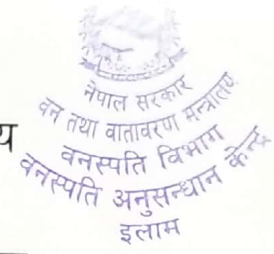 नेपाल सरकार
वन तथा वातावरण मन्त्रालय
वनस्पति विभाग
वनस्पति अनुसन्धान केन्द्र
इलाम
य